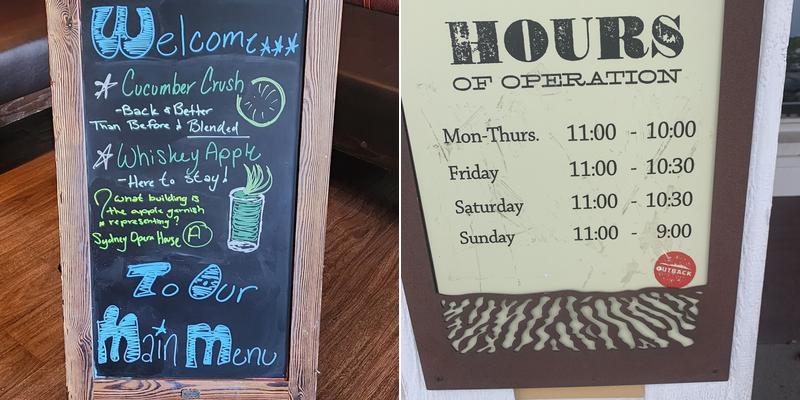 Welcome...
Cucumber Crush
-Back & Better
Than Before & Blended
Whiskey Apple
-Here to stay!
? what building is
the apple garnish
representing?
Sydney Opera House A+
To Our
Main Menu
HOURS
OF OPERATION
Mon-Thurs. 11:00 - 10:00
Friday 11:00 - 10:30
Saturday 11:00 - 10:30
Sunday 11:00 - 9:00
OUTBACK